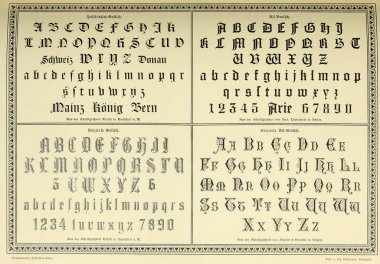 Holländisch-Gothisch.
A B C D E F G H I J K
L M N O P Q R S T U
Schweiz W X Y Z Donau
a b c d e f g h i j k l m n o p q r
s t u v w x y z
Mainz König Bern
Alt-Deutsch.
A B C D E F G H I J
K L M N O P Q R S T
U V W X Y Z
a b c d e f g h i j k l m n o p
q r s t u v w x y z
1 2 3 4 5 Arie 6 7 8 9 0
Verzierte Gothisch.
A B C D E F G H I J K L
M N O P Q R S T U V W
5 X Y Z 6
a b c d e f g h i j k l m n o p q
1 2 3 4 r s t u v w x y z 7 8 9 0
Verzierte Alt-Gothisch.
Aa Bb Cc Dd Ee
Ff Gg Hh Ii Jj Kk Ll
Mm Nn Oo Pp Qq Rr
Ss Tt Uu Vv Ww
Xx Yy Zz